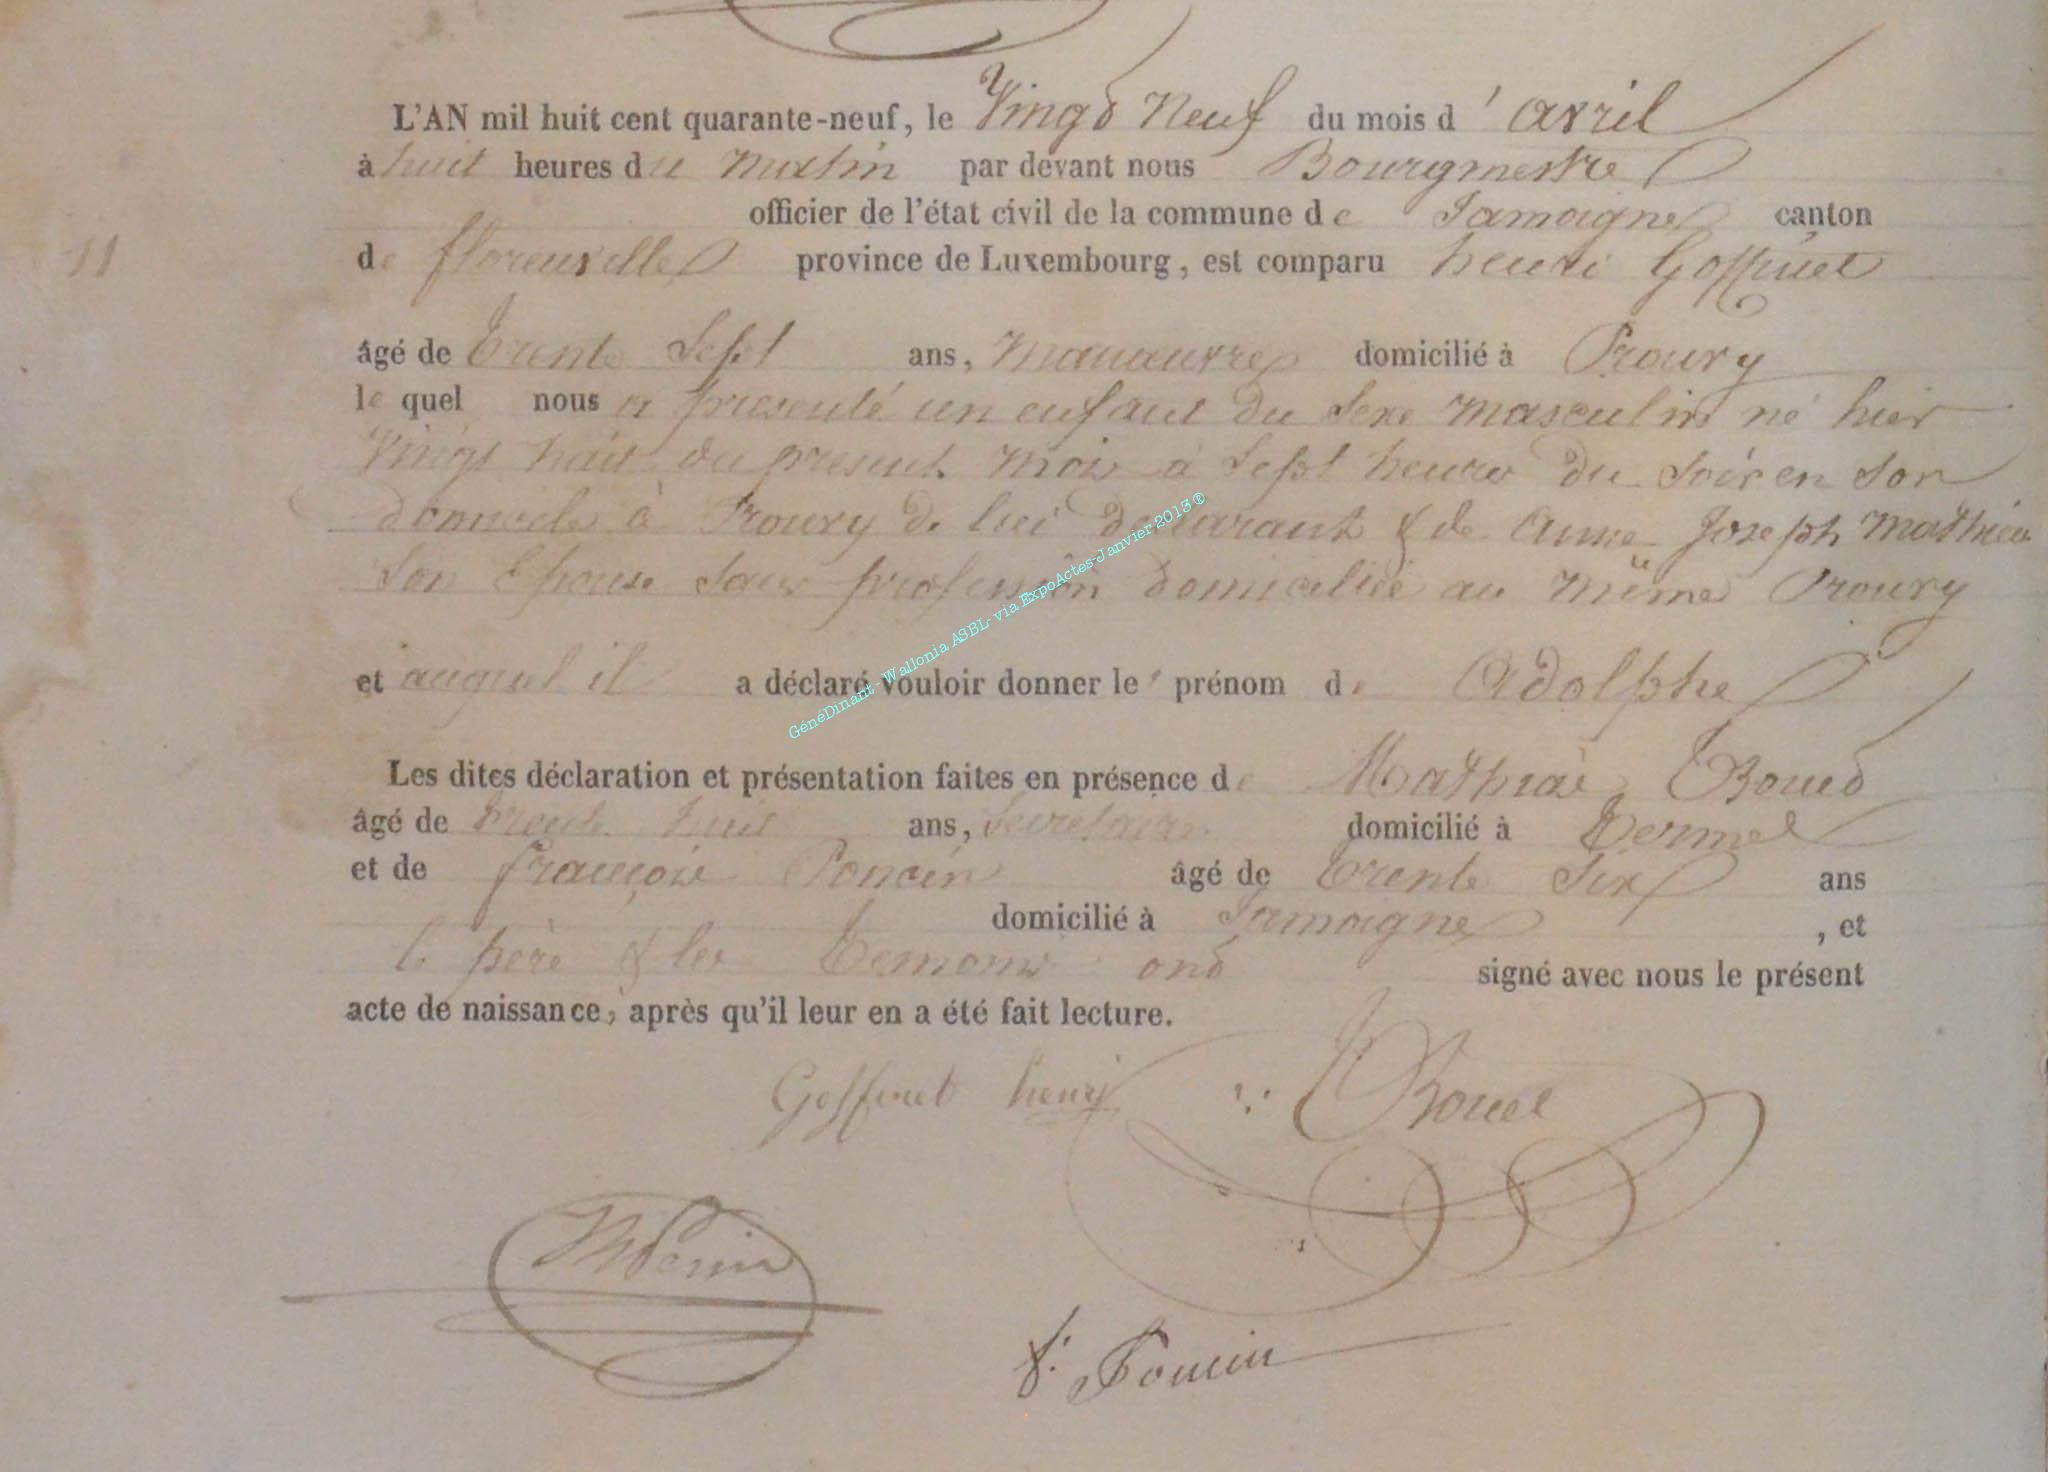 L'AN mil huit cent quarante-neuf, le Vingt neuf du mois d'avril
à huit heures du matin par devant nous Bourgmestre
officier de l'état civil de la commune de Jamoigne canton
11
de florenville province de Luxembourg, est comparu henri Goffinet
âgé de trente Sept ans, manœuvre domicilié à Prouvy
le quel nous a presenté un enfant du Sexe masculin né hier
Vingt huit du present mois à Sept heures du Soir en Son
domicile à Prouvy de lui declarant & de anne Joseph Mathieu
Son Epouse Sans profession domiciliée au même Prouvy
et auquel il a déclaré vouloir donner le prénom de Adolphe
Les dites déclaration et présentation faites en présence de Mathias Bouet
âgé de trente huit ans, Secretaire domicilié à Termes
et de françois Poncin âgé de trente Six ans
domicilié à Jamoigne, et
le père & les temoins ont signé avec nous le présent
acte de naissance, après qu'il leur en a été fait lecture.
Goffinet henri Bouet
f. Poncin
GénéDinant - Wallonia ASBL- via ExpoActes-Janvier 2013®